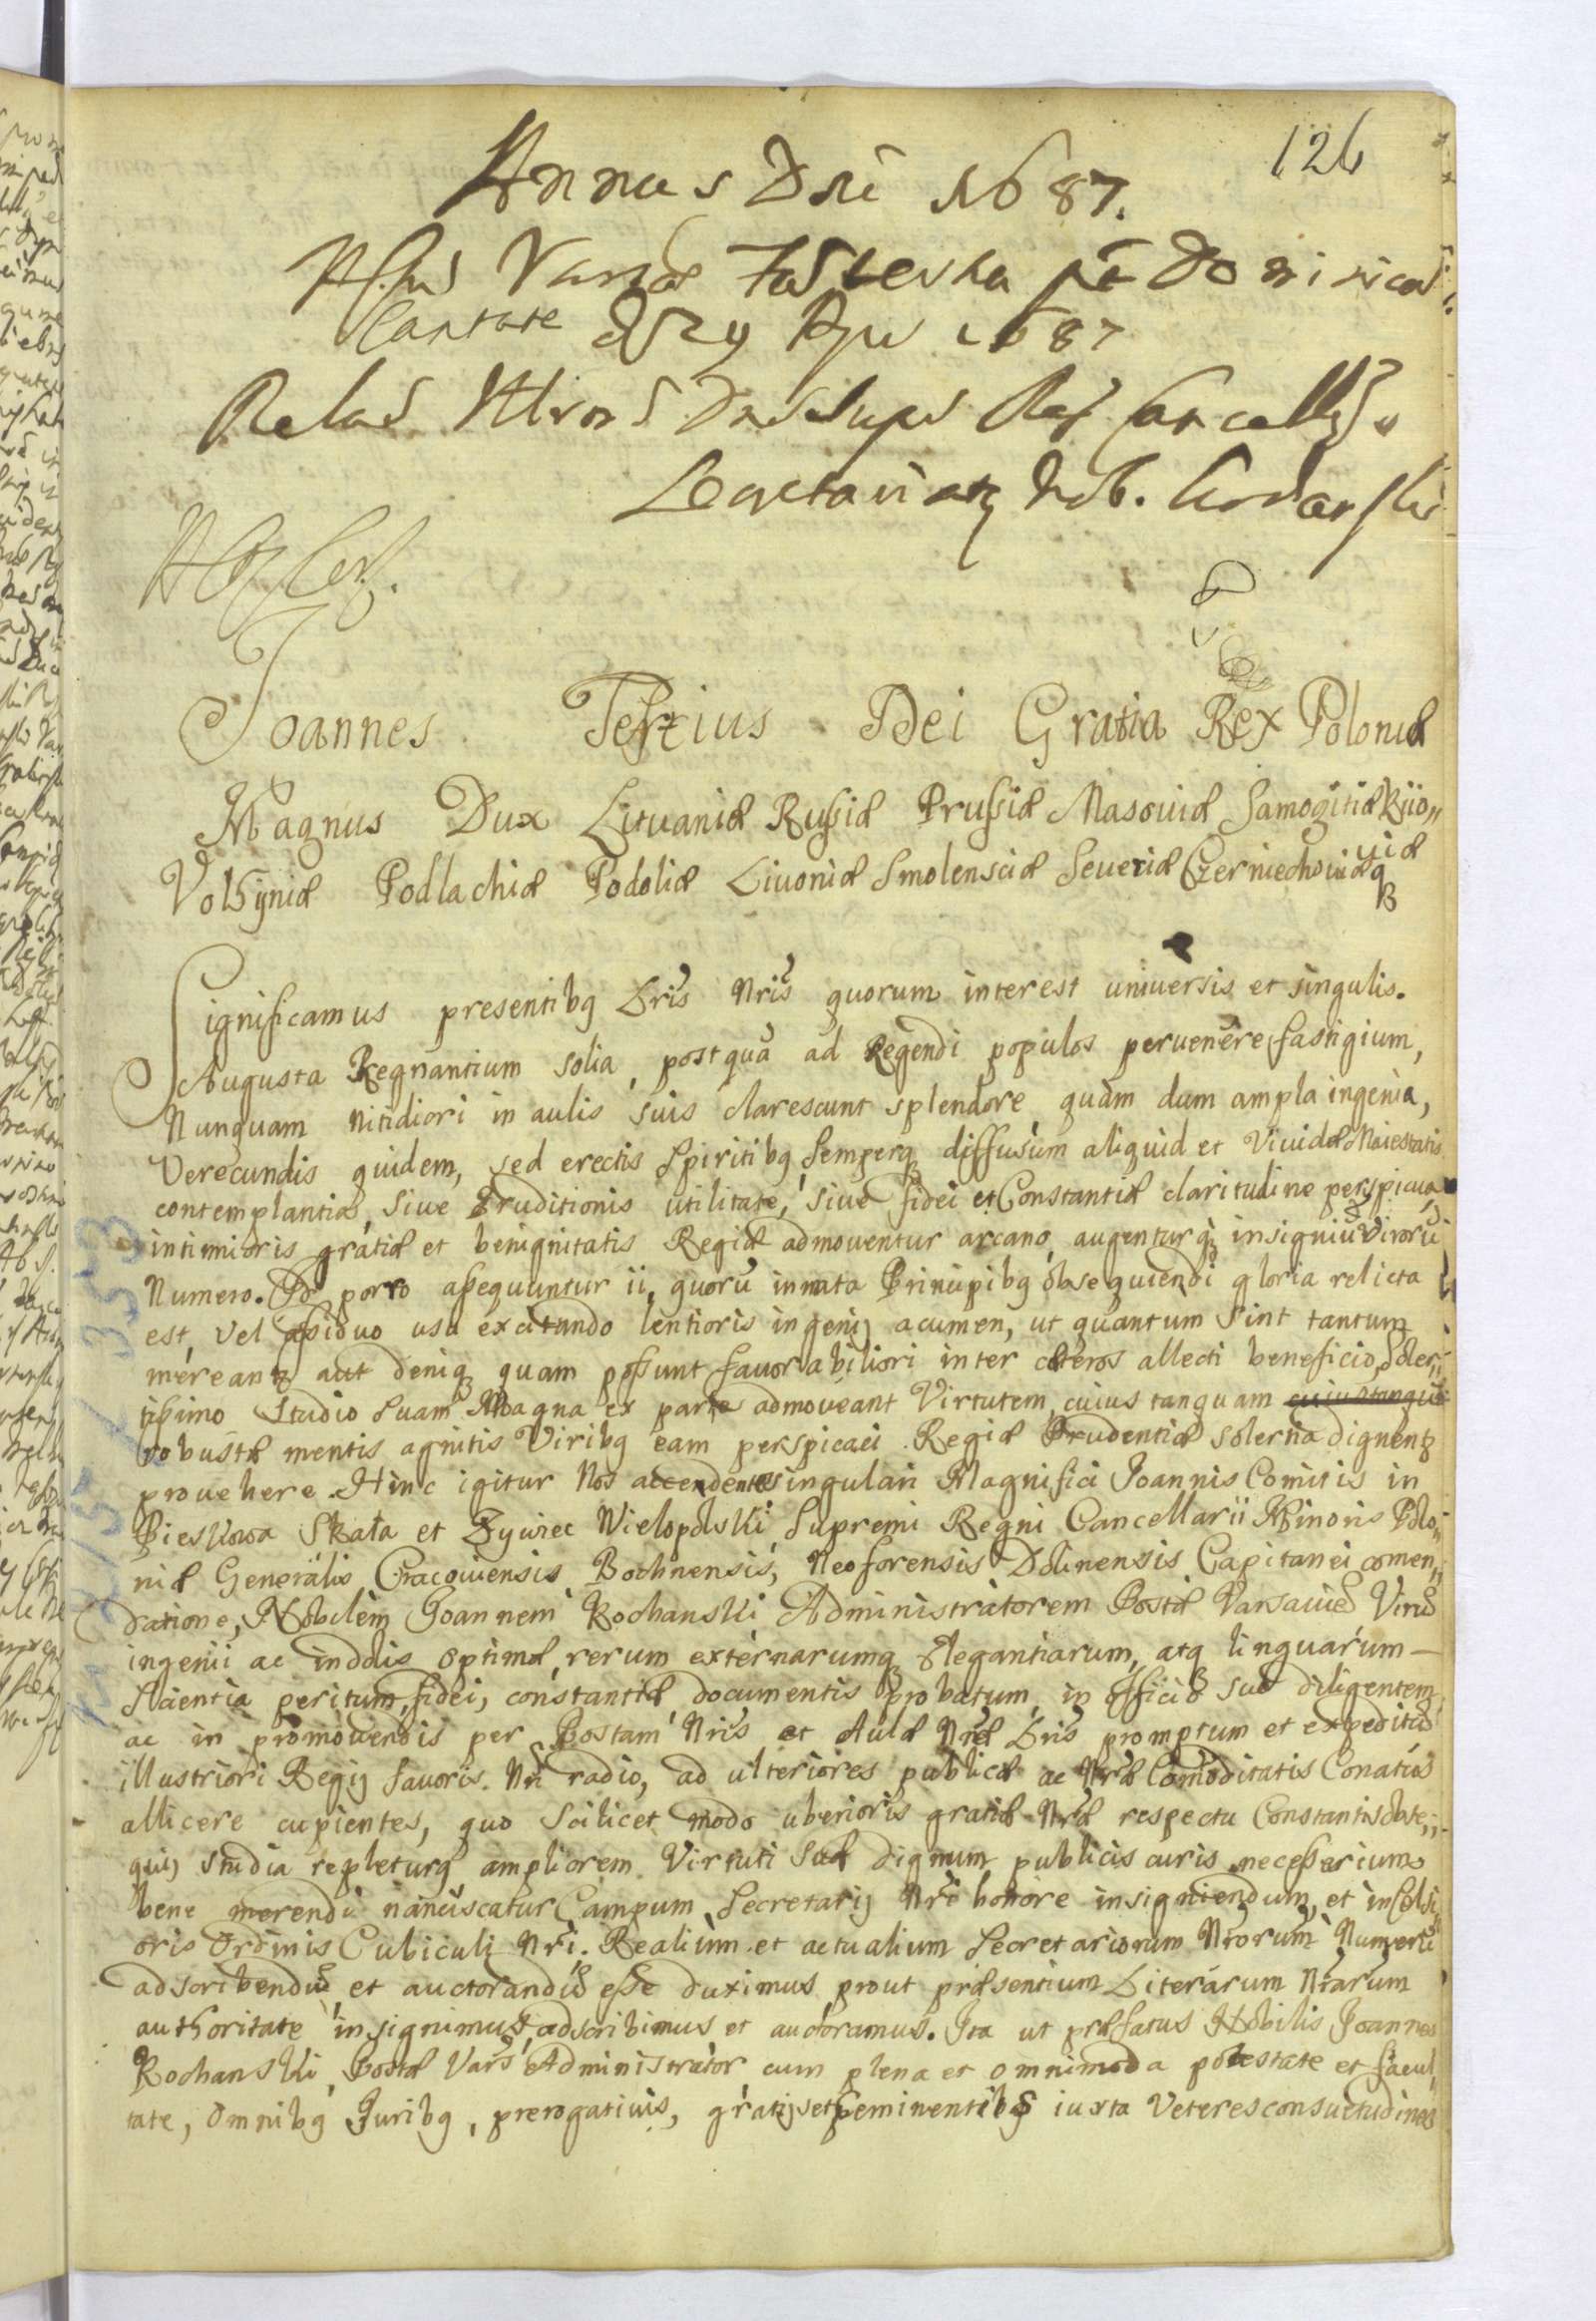 126
Annus Dni 1687.
Varsae feria pt Dominicam
Cantate d 29 Apr 1687
Relao Illris Dni Supr Reg Cancellrj.
Secretariatq Nob. Kochanski
Joannes Tertius Dei Gratia Rex Poloniæ
Magnus Dux Lituaniæ Russiæ Prussiæ Masoviæ Samogitiæ Kiio„
viæ
Volhyniæ Podlachiæ Podoliæ Livoniæ Smolensciæ Severiæ Czerniechoviæq
Significamus presentibq Lris Nris quorum interest universis et singulis.
Augusta Regnantium solia, postquā ad Regendi populos pervenēre fastigium,
Nunquam nitidiori in aulis suis clarescunt splendore quàm dum ampla ingenia,
Verecundis quidem, sed erectis Spiritibq Semperq diffusum aliquid et Vividæ Maiestatis
contemplantia, sive Eruditionis utilitate, sive fidei et Constantiæ claritudine perspicua,
intimioris gratiæ et benignitatis Regiæ admoventur arcano, augenturq insigniū Virorū
Numero. Id porro assequuntur ii, quorū innata Principibq obsequendi gloria relicta
est, vel assiduo usu excitando lentioris ingenij acumen, ut quantum sint tantum
mereantq aut deniq quam possunt favorabiliori inter cæteros allecti beneficio, soler„
tissimo Studio Suam Magna ex parte admoveant Virtutem, cuius tanquam cuius tanquā
robustæ mentis agnitis Viribq eam perspicaci Regiæ Prudentiæ solertia dignentq
provehere. Hinc igitur Nos accendente singulari Magnifici Joannis Comitis in
Pieskowa Skała et Zywiec Wielopolski, Supremi Regni Cancellarii Minoris Polo„
niæ Generalis Cracoviensis Bochnensis, Neoforensis Dolinensis Capitanei comen„
datione, Nobilem Joannem Kochanski Administratorem Postæ Varsaviē Virū
ingenii ac indolis optimæ, rerum externarumq elegantiarum, atq linguarum
scientia peritum, fidei, constantiæ documentis probatum, in officio suo diligentem
ac in promovendis per Postam Nris et Aulæ Nræ Lris promptum et expeditū
illustriori Regij favoris Nri radio, ad ulteriores publicæ ac Nræ Comoditatis Conatus
allicere cupientes, quo scilicet modo uberioris gratiæ Nræ respectu Constantis obse„
quij studia repleturq ampliorem Virtuti suæ dignum, publicis curis necessarium
bene merendi nanciscatur Campum, Secretarij Nri honore insigniendum, et in Celsi„
oris Ordinis Cubiculi Nri. Realium et actualium Secretariorum Nrorum Numerū
adscribendū et auctorandū esse duximus, prout præsentium Literarum Nrarum
authoritate insignimus, adscribimus et auctoramus. Ita ut præfatus Nobilis Joannes
Kochanski, Postæ Vars Administrator cum plena et omnimoda potestate et facul„
tate, omnibq Juribq, prerogativis, gratijs et eminentibs iuxta Veteres consuetudines